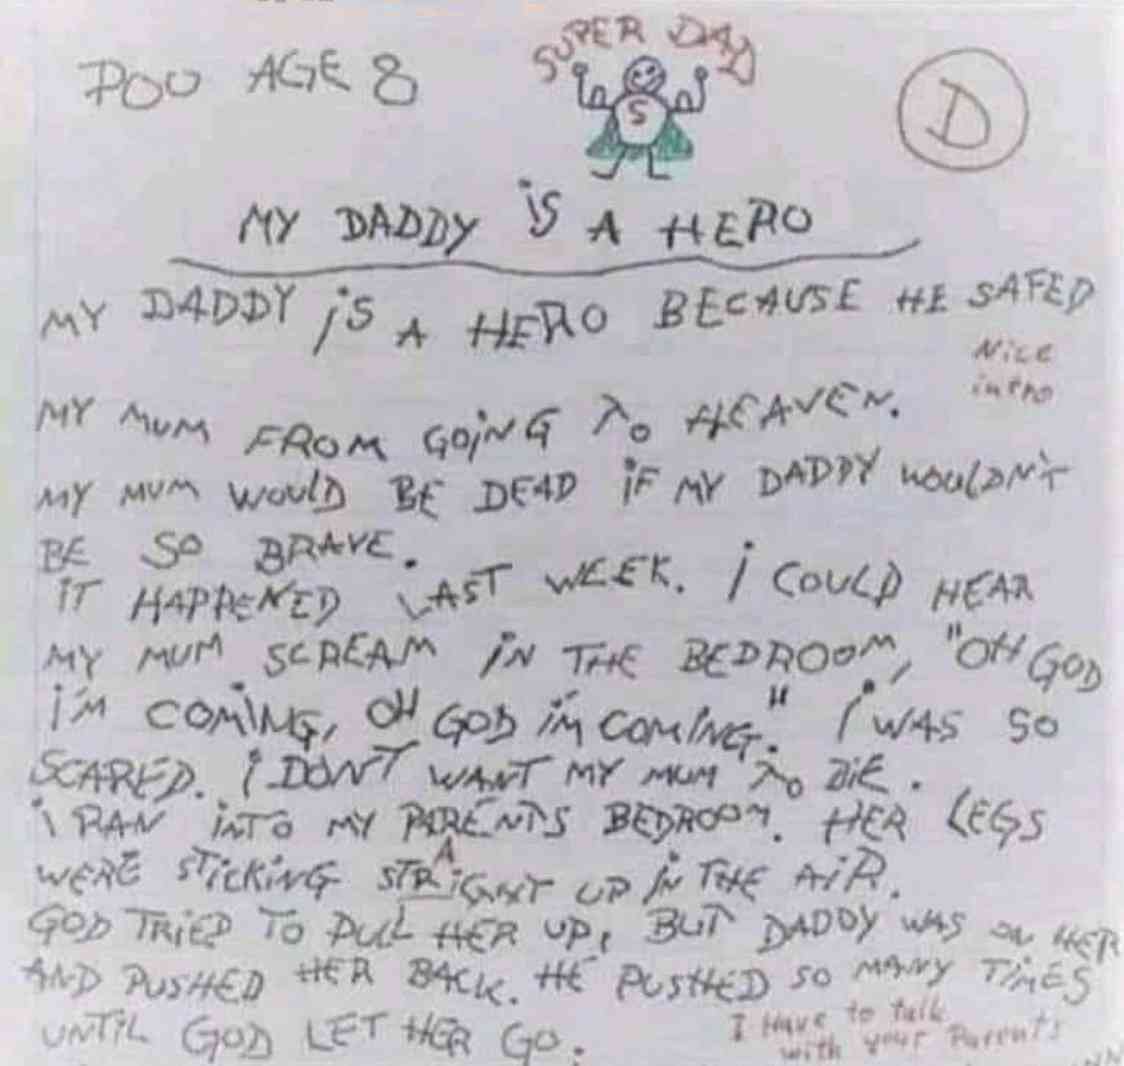 POO AGE 8
SUPER DAD
S
D
MY DADDY iS A HERO
MY DADDY iS A HERO BECAUSE HE SAFED
Nice
intro
MY MUM FROM GOiNG To HEAVEN.
MY MUM WOULD BE DEAD iF MY DADDY WOULDN'T
BE SO BRAVE.
iT HAPPENED LAST WEEK. i COULD HEAR
MY MUM SCREAM iN THE BEDROOM, "OH GOD
i'M COMiNG, OH GOD iM COMiNG." i WAS SO
SCARED. i DON'T WANT MY MUM To DiE.
i RAN iNTO MY PARENTS BEDROOM. HER LEGS
WERE STiCKiNG STRAiGHT UP iN THE AiR.
GOD TRiED TO PULL HER UP, BUT DADDY WAS ON HER
AND PUSHED HER BACK. HE PUSHED SO MANY TiMES
UNTiL GOD LET HER GO.
I Have to talk
with your Parents